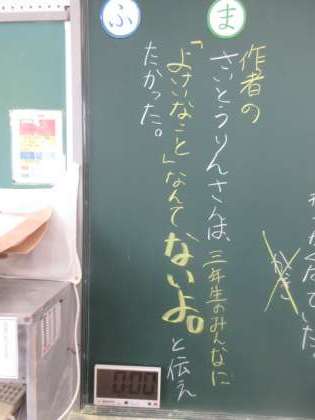 ま
作者の
さいとうりんさんは、三年生のみんなに
「よけいなこと」なんてないよ。と伝え
たかった。
ふ